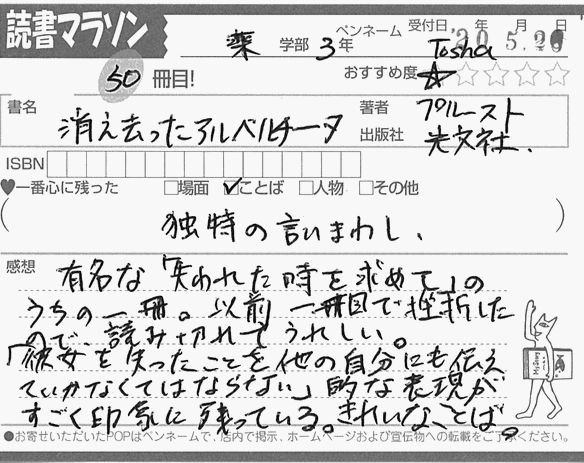 読書マラソン
薬 学部 3年
ペンネーム Tosha
受付日 '20年 5月 20日
50 冊目!
おすすめ度 ★☆☆☆☆
書名 消え去ったアルベルチーヌ
著者 プルースト
出版社 光文社.
ISBN
♥一番心に残った □場面 ☑ことば □人物 □その他
(独特の言いまわし、)
感想 有名な「失われた時を求めて」の
うちの一冊。以前 一冊目で挫折した
ので、読み切れてうれしい。
「彼女を失ったことを他の自分にも伝え
ていかなくてはならない」的な表現が
すごく印象に残っている。きれいなことば。
●お寄せいただいたPOPはペンネームで、店内で掲示、ホームページおよび宣伝物への転載をご了承ください。